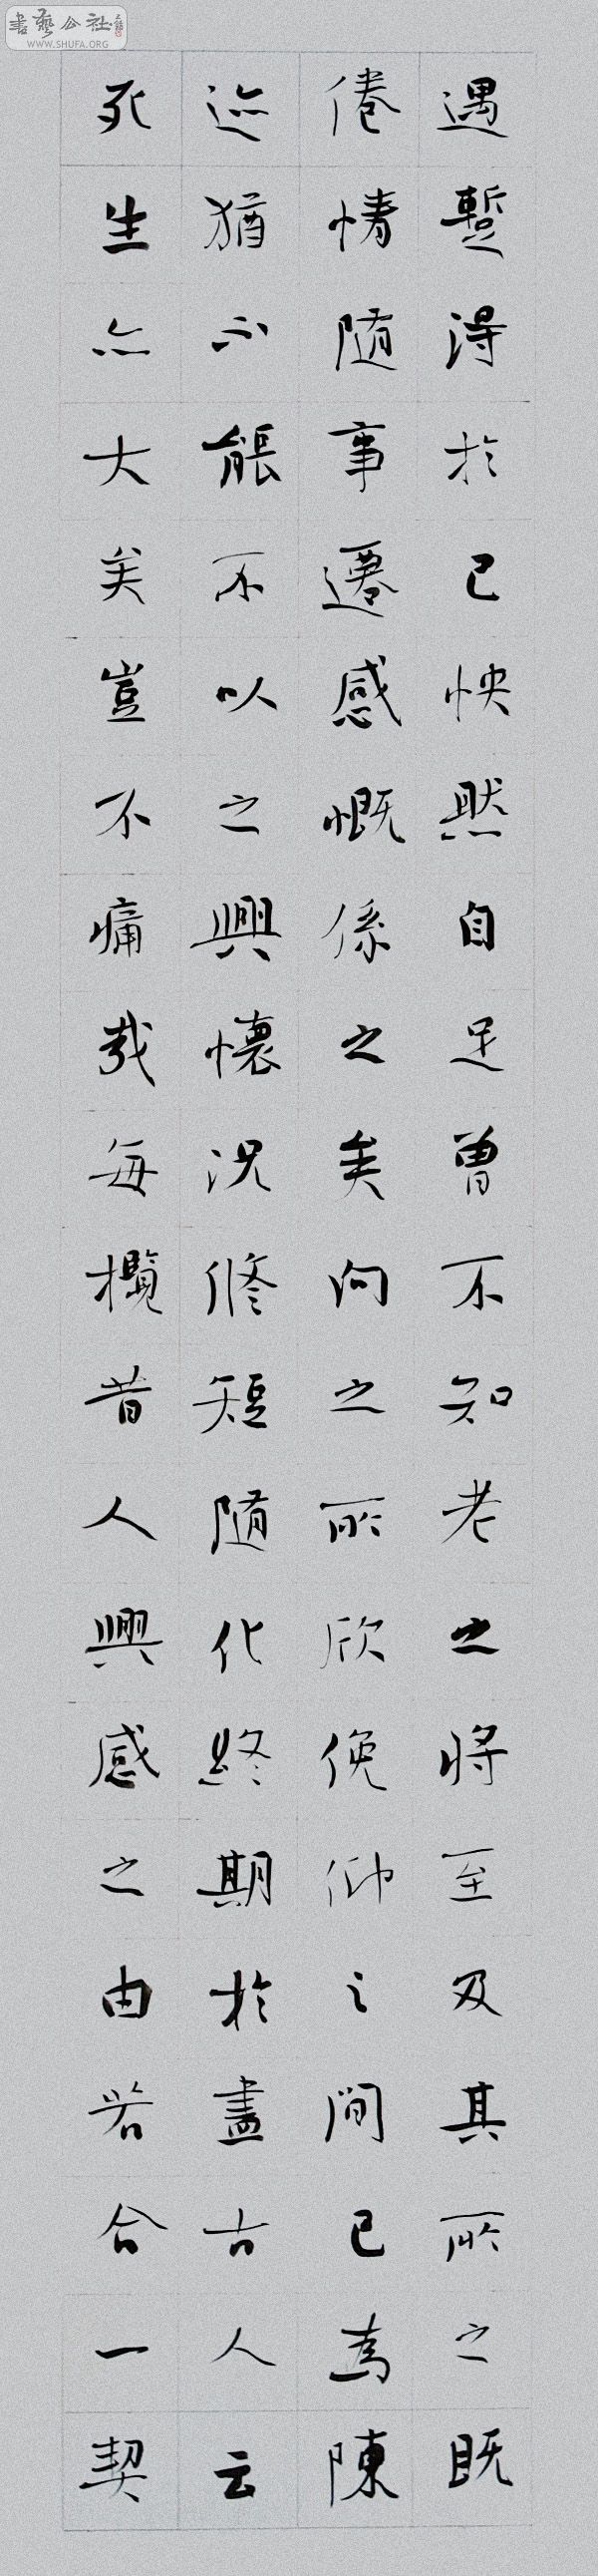 書藝公社
WWW.SHUFA.ORG
遇蹔得於己怏然自足曾不知老之將至及其所之既
倦情随事遷感慨係之矣向之所欣俛仰之間已為陳
迹猶不能不以之興懷況修短随化終期於盡古人云
死生亦大矣豈不痛哉每攬昔人興感之由若合一契